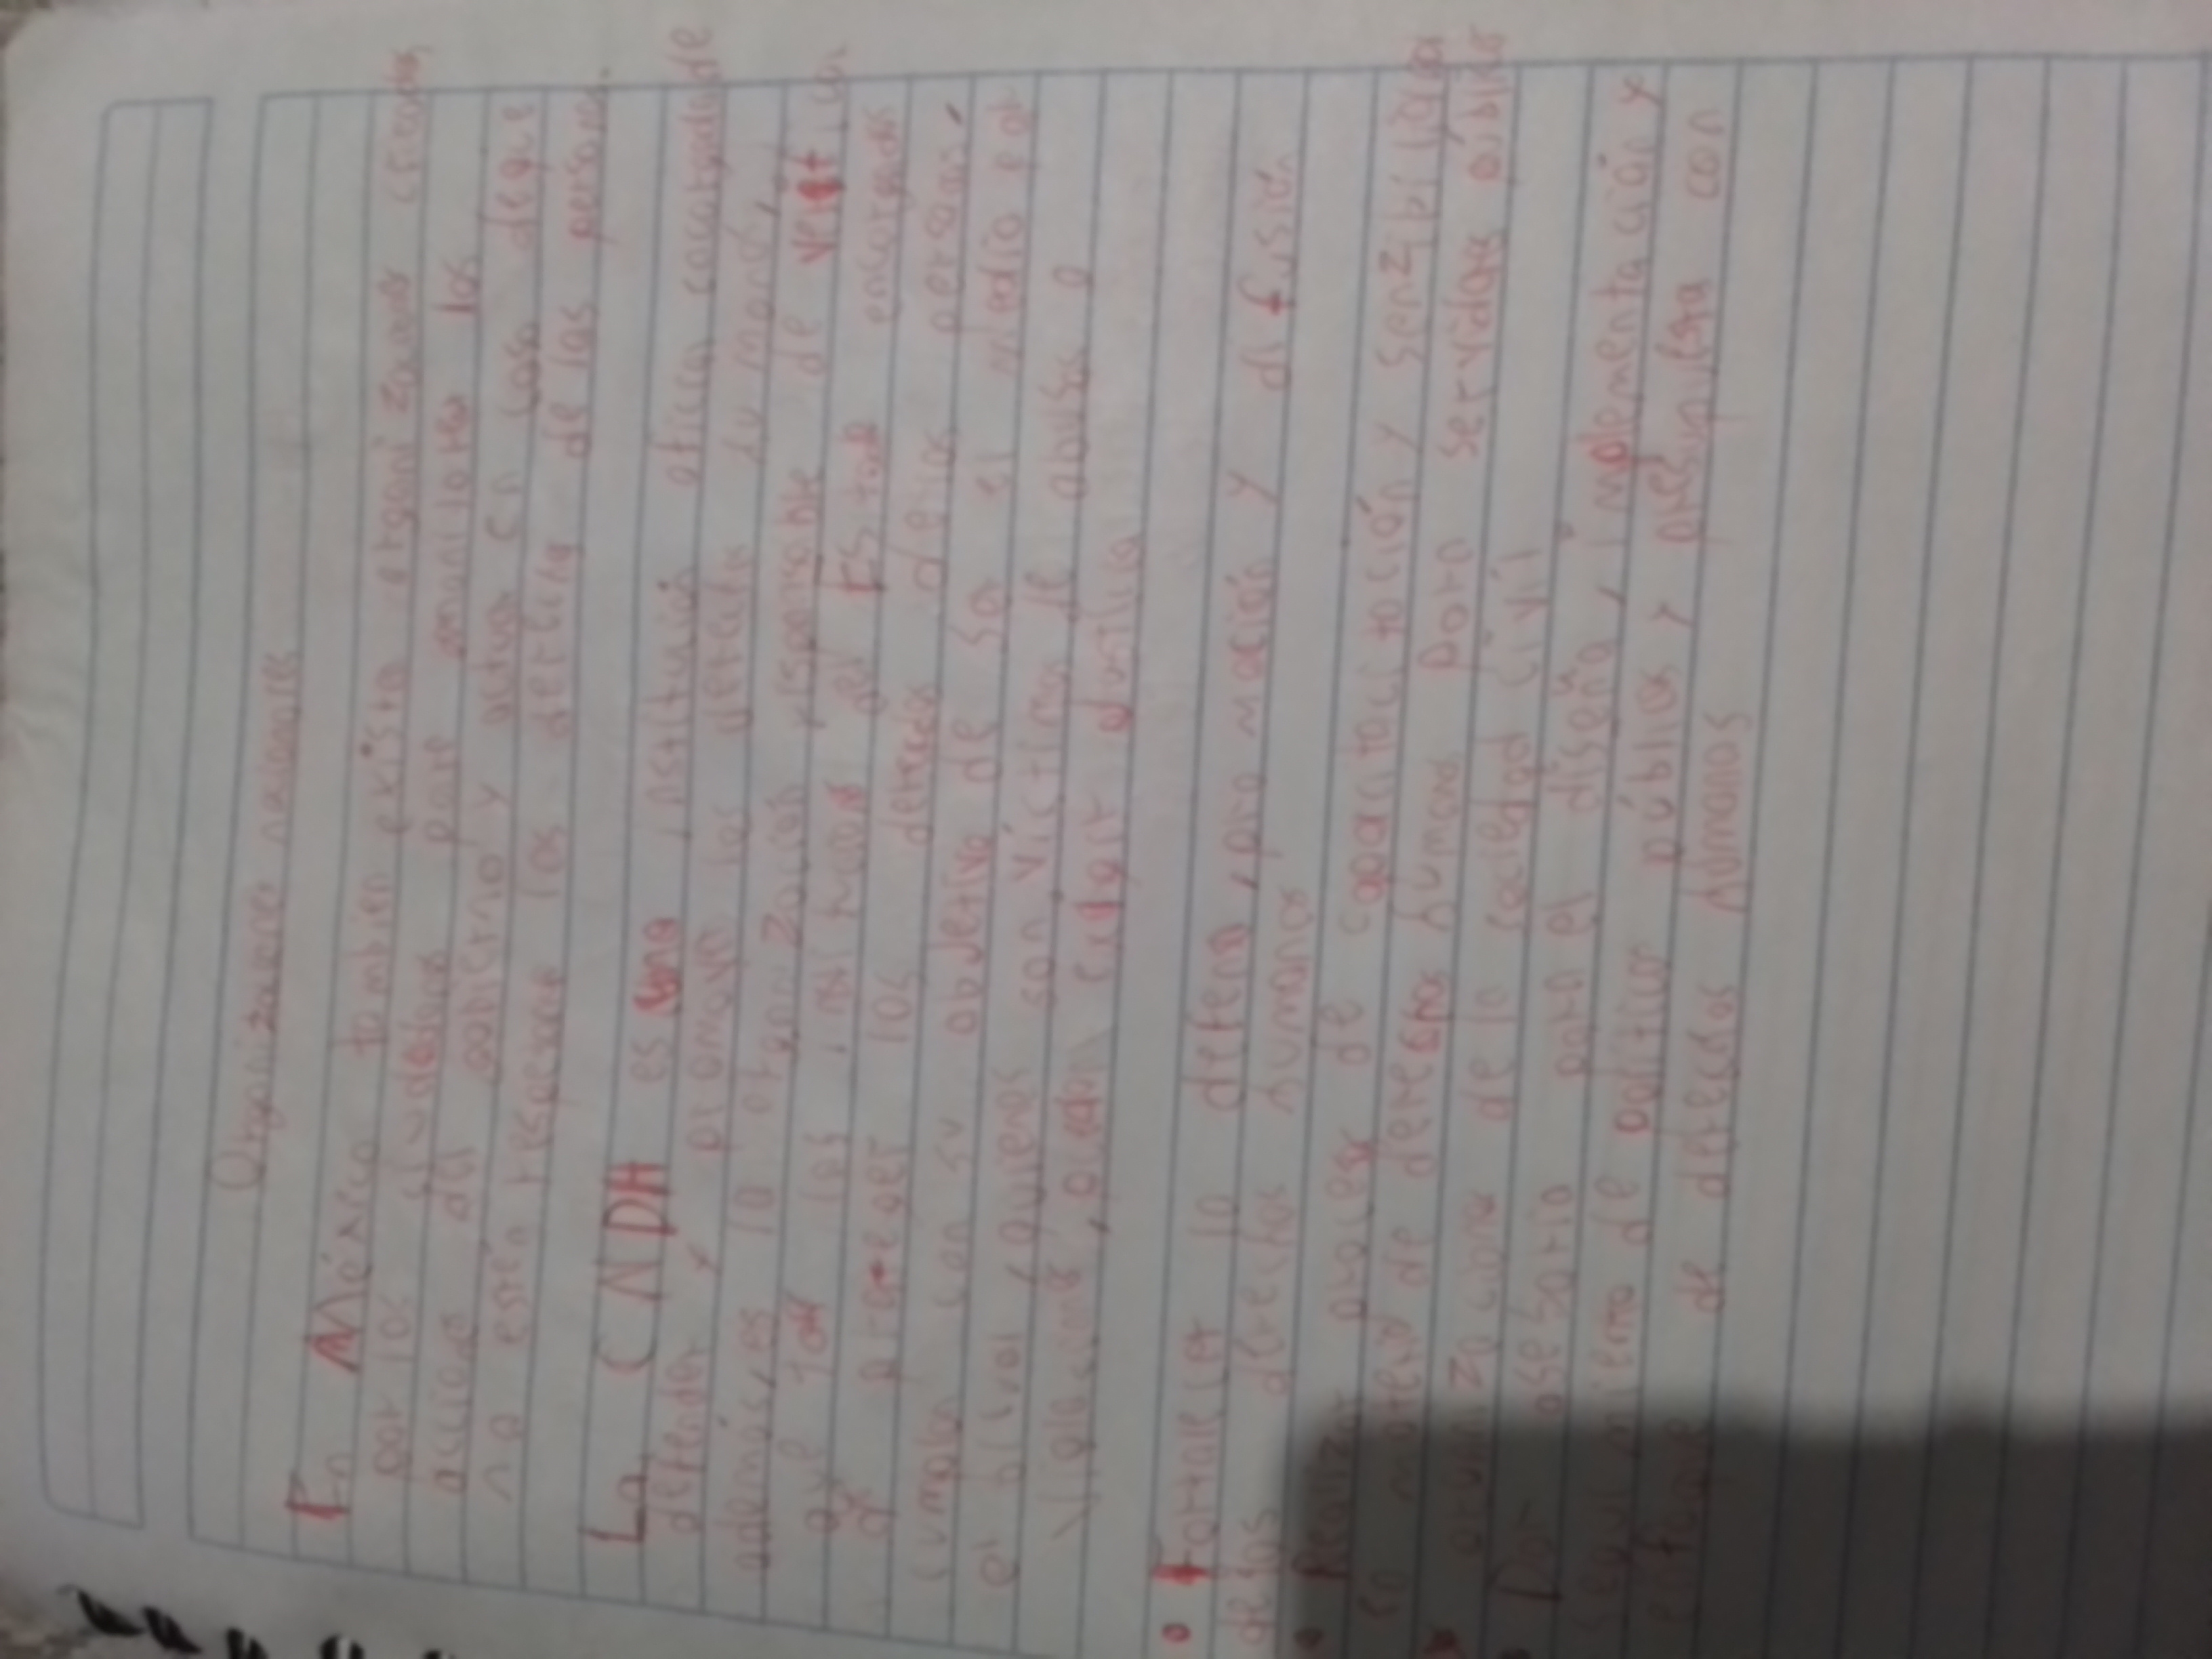 Organizacione nacionales
En México tambien existen organizaciones creados
por los ciudadanos para los
acciones del gobierno y actua en caso deque
no estén respetando los derechos de las persona.
La CNDH es una institución
defender y promover los derecho humanos,
además, es la organización responsable de
que todas las del Estado encargadas
de proteger los derechos de las personas,
cumplan con su objetivo de ser el medio por
el cual, quienes son victimas de abusos o
violaciones, pueden exigir justicia
• Fortalecer la defensa, promoción y difusión
delos derechos humanos
• Realizar procesos de capacitación y senzibilización
en materia de derechos humanos para servidores públicos
y organizacione de la sociedad civil
• Dar asesoría para el diseño, implementación y
seguimiento de políticas públicas y presupuesta con
enfoque de derechos humanos